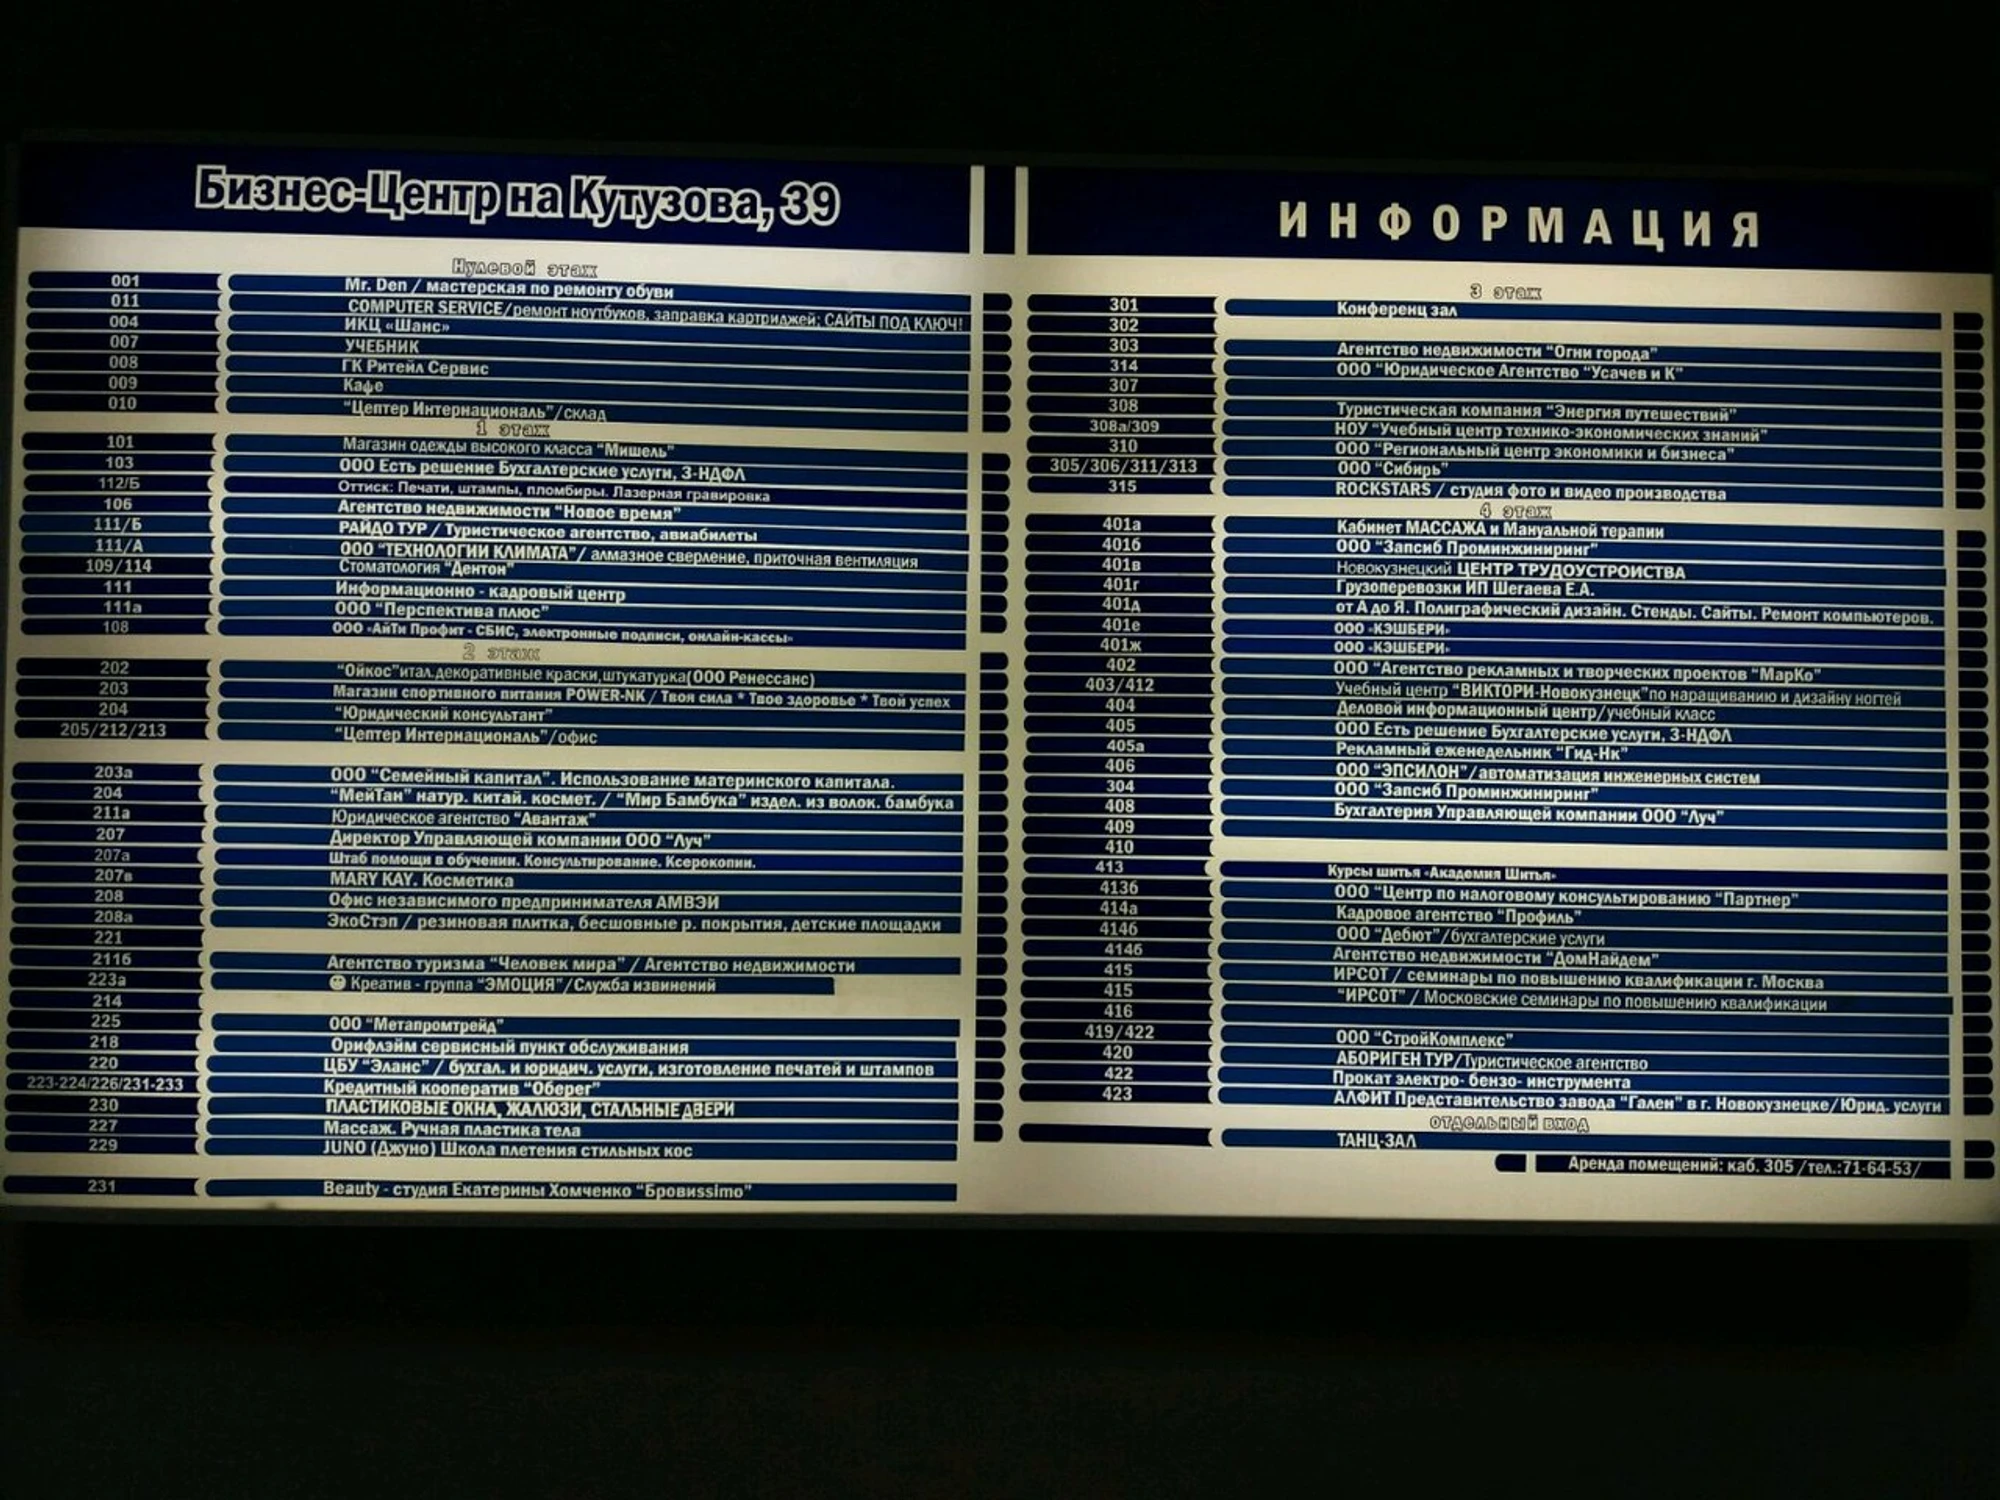 Бизнес-Центр на Кутузова, 39
Нулевой этаж
001 Mr. Den / мастерская по ремонту обуви
011 COMPUTER SERVICE/ремонт ноутбуков, заправка картриджей; САЙТЫ ПОД КЛЮЧ!
004 ИКЦ «Шанс»
007 УЧЕБНИК
008 ГК Ритейл Сервис
009 Кафе
010 "Цептер Интернациональ"/склад
1 этаж
101 Магазин одежды высокого класса "Мишель"
103 ООО Есть решение Бухгалтерские услуги, 3-НДФЛ
112/Б Оттиск: Печати, штампы, пломбиры. Лазерная гравировка
106 Агентство недвижимости "Новое время"
111/Б РАЙДО ТУР / Туристическое агентство, авиабилеты
111/А ООО "ТЕХНОЛОГИИ КЛИМАТА"/ алмазное сверление, приточная вентиляция
109/114 Стоматология "Дентон"
111 Информационно - кадровый центр
111а ООО "Перспектива плюс"
108 ООО «АйТи Профит - СБИС, электронные подписи, онлайн-кассы»
2 этаж
202 "Ойкос"итал.декоративные краски,штукатурка(ООО Ренессанс)
203 Магазин спортивного питания POWER-NK / Твоя сила * Твое здоровье * Твой успех
204 "Юридический консультант"
205/212/213 "Цептер Интернациональ"/офис
203а ООО "Семейный капитал". Использование материнского капитала.
204 "МейТан" натур. китай. космет. / "Мир Бамбука" издел. из волок. бамбука
211а Юридическое агентство "Авантаж"
207 Директор Управляющей компании ООО "Луч"
207а Штаб помощи в обучении. Консультирование. Ксерокопии.
207в MARY KAY. Косметика
208 Офис независимого предпринимателя АМВЭЙ
208а ЭкоСтэп / резиновая плитка, бесшовные р. покрытия, детские площадки
221
211б Агентство туризма "Человек мира" / Агентство недвижимости
223а Креатив - группа "ЭМОЦИЯ"/Служба извинений
214
225 ООО "Метапромтрейд"
218 Орифлэйм сервисный пункт обслуживания
220 ЦБУ "Эланс" / бухгал. и юридич. услуги, изготовление печатей и штампов
223-224/226/231-233 Кредитный кооператив "Оберег"
230 ПЛАСТИКОВЫЕ ОКНА, ЖАЛЮЗИ, СТАЛЬНЫЕ ДВЕРИ
227 Массаж. Ручная пластика тела
229 JUNO (Джуно) Школа плетения стильных кос
231 Beauty - студия Екатерины Хомченко "Бровиssimo"
ИНФОРМАЦИЯ
3 этаж
301 Конференц зал
302
303 Агентство недвижимости "Огни города"
314 ООО "Юридическое Агентство "Усачев и К"
307
308 Туристическая компания "Энергия путешествий"
308а/309 НОУ "Учебный центр технико-экономических знаний"
310 ООО "Региональный центр экономики и бизнеса"
305/306/311/313 ООО "Сибирь"
315 ROCKSTARS / студия фото и видео производства
4 этаж
401а Кабинет МАССАЖА и Мануальной терапии
401б ООО "Запсиб Проминжиниринг"
401в Новокузнецкий ЦЕНТР ТРУДОУСТРОЙСТВА
401г Грузоперевозки ИП Шегаева Е.А.
401д от А до Я. Полиграфический дизайн. Стенды. Сайты. Ремонт компьютеров.
401е ООО «КЭШБЕРИ»
401ж ООО «КЭШБЕРИ»
402 ООО "Агентство рекламных и творческих проектов "МарКо"
403/412 Учебный центр "ВИКТОРИ-Новокузнецк"по наращиванию и дизайну ногтей
404 Деловой информационный центр/учебный класс
405 ООО Есть решение Бухгалтерские услуги, 3-НДФЛ
405а Рекламный еженедельник "Гид-Нк"
406 ООО "ЭПСИЛОН"/автоматизация инженерных систем
304 ООО "Запсиб Проминжиниринг"
408 Бухгалтерия Управляющей компании ООО "Луч"
409
410
413 Курсы шитья «Академия Шитья»
413б ООО "Центр по налоговому консультированию "Партнер"
414а Кадровое агентство "Профиль"
414б ООО "Дебют"/бухгалтерские услуги
414б Агентство недвижимости "ДомНайдем"
415 ИРСОТ / семинары по повышению квалификации г. Москва
415 "ИРСОТ" / Московские семинары по повышению квалификации
416
419/422 ООО "СтройКомплекс"
420 АБОРИГЕН ТУР/Туристическое агентство
422 Прокат электро- бензо- инструмента
423 АЛФИТ Представительство завода "Гален" в г. Новокузнецке/Юрид. услуги
ОТДЕЛЬНЫЙ ВХОД
ТАНЦ-ЗАЛ
Аренда помещений: каб. 305 /тел.:71-64-53/